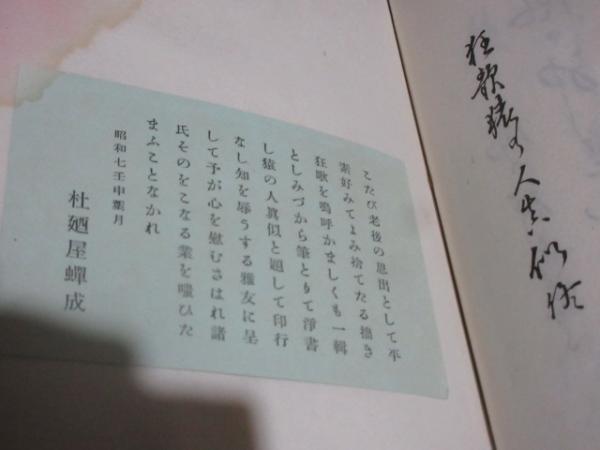 狂歌猿の人真似 序
こたび老後の思出として平
素好みてよみ捨てたる描き
狂歌を嗚呼かましくも一輯
としみづから筆とりて淨書
し猿の人眞似と題して印行
なし知を辱うする雅友に呈
して予が心を慰むさはれ諸
氏そのをこなる業を嗤ひた
まふことなかれ
昭和七壬申葉月
杜廼屋蟬成